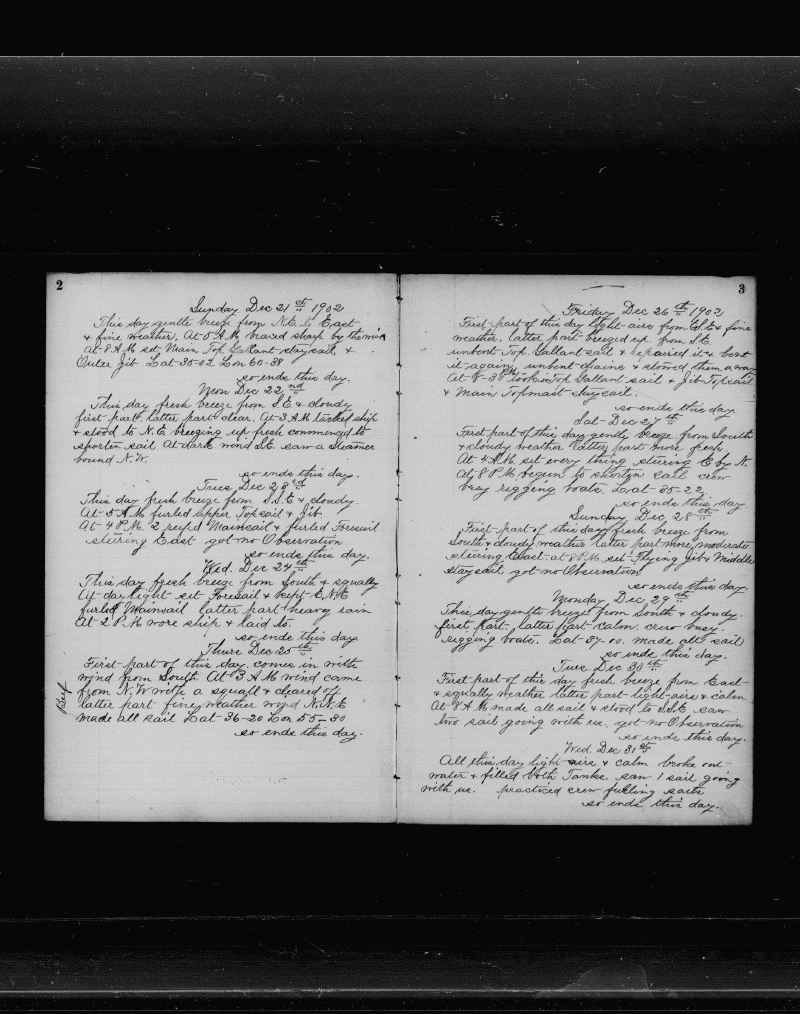 2
Sunday Dec 21st 1902
This day gentle breeze from N.E. to East
& fine weather. At 5 A.M. braced sharp by the wind
At 8 A.M. set Main Top Gallant staysail &
Outer Jib Lat 35-02 Lon 60-38
so ends this day.
Mon Dec 22nd
This day fresh breeze from S.E & cloudy
first part, latter part clear. At 3 A.M tacked ship
& stood to N.E. breezing up fresh commenced to
shorten sail At dark wind S.E. saw a Steamer
bound N.W.
so ends this day.
Tues Dec 23rd
This day fresh breeze from S.S.E & cloudy.
At 5 A.M furled upper Topsail & Jib
At 4 P.M. 2 reefd Mainsail & furled Foresail
steering East got no Observation
so ends this day.
Wed. Dec 24th
This day fresh breeze from South & squally
At daylight set Foresail & kept E.N.E
furled Mainsail latter part heavy rain
At 2 P.M wore ship & laid to.
so ends this day
Thurs Dec 25th
First part of this day comes in with
wind from South At 3 A.M wind came
from N.W with a squall & cleared of
latter part fine weather wind N.N.E
Made all sail Lat 36-20 Lon 55-30
so ends this day.
Beef
3
Friday Dec 26th 1902
First part of this day light airs from S.E & fine
weather, latter part breezed up from S.E.
unbent Top Gallant sail & repaired it & bent
it again, unbent chains & stowed them away
At 8-30 P.M. took in Top Gallant sail & Jib Topsail
& Main Topmast staysail.
so ends this day
Sat Dec 27th
First part of this day gentle breeze from South
& cloudy weather latter part more fresh
At 4 A.M set every thing steering E by N.
At 8 P.M. begun to shorten sail crew
busy rigging boats, Lat 35-22
so ends this day
Sunday Dec 28th
First part of this day fresh breeze from
South & cloudy weather latter part more moderate
steering East at 8 P.M. set Flying jib & Middle
staysail got no Observation
so ends this day.
Monday Dec 29th
This day gentle breeze from South & cloudy
first part. latter part calm. crew busy
rigging boats. Lat 37-00. made all sail
so ends this day.
Tues Dec 30th
First part of this day fresh breeze from East
& squally weather latter part light airs & calm
At 8 A.M made all sail & stood to S.S.E saw
two sail going with us. got no Observation
so ends this day.
Wed. Dec 31st
All this day light airs & calm broke out
water & filled both Tanks. saw 1 sail going
with us. practiced crew furling sails
so ends this day.